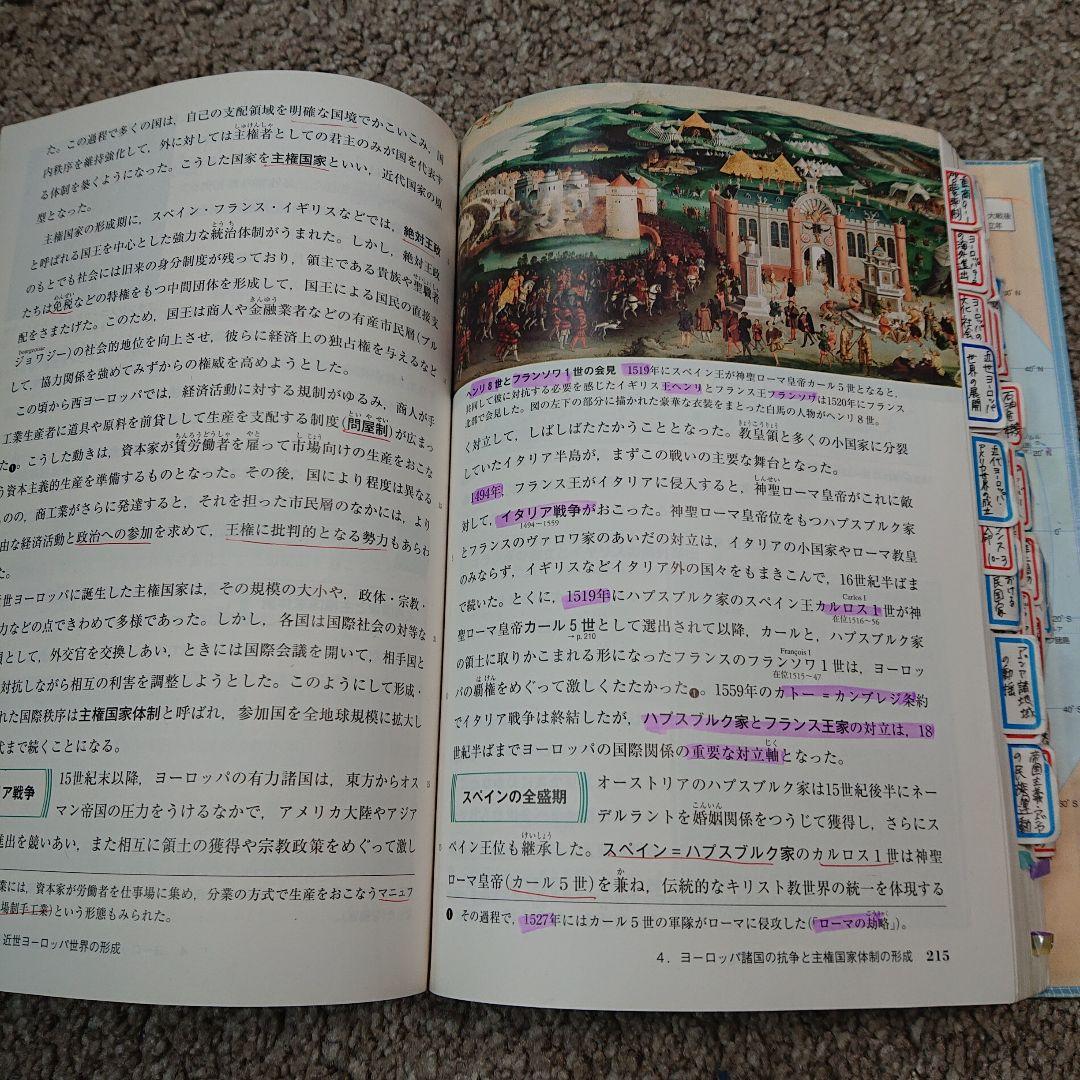 た。この過程で多くの国は，自己の支配領域を明確な国境でかこいこみ，国
内秩序を維持強化して，外に対しては主権者としての君主のみが国を代表す
る体制を築くようになった。こうした国家を主権国家といい，近代国家の原
型となった。
主権国家の形成期に，スペイン・フランス・イギリスなどでは，絶対王政
と呼ばれる国王を中心とした強力な統治体制がうまれた。しかし，絶対王政
のもとでも社会には旧来の身分制度が残っており，領主である貴族や聖職者
たちは免税などの特権をもつ中間団体を形成して，国王による国民の直接支
配をさまたげた。このため，国王は商人や金融業者などの有産市民層(ブル
ジョワジー)の社会的地位を向上させ，彼らに経済上の独占権を与えるなど
して，協力関係を強めてみずからの権威を高めようとした。
この頃から西ヨーロッパでは，経済活動に対する規制がゆるみ，商人が手
工業生産者に道具や原料を前貸しして生産を支配する制度(問屋制)が広まっ
た❶。こうした動きは，資本家が賃労働者を雇って市場向けの生産をおこな
う資本主義的生産を準備するものとなった。その後，国により程度は異なる
ものの，商工業がさらに発達すると，それを担った市民層のなかには，より
由な経済活動と政治への参加を求めて，王権に批判的となる勢力もあらわ
た。
近世ヨーロッパに誕生した主権国家は，その規模の大小や，政体・宗教・
力などの点できわめて多様であった。しかし，各国は国際社会の対等な
員として，外交官を交換しあい，ときには国際会議を開いて，相手国と
対抗しながら相互の利害を調整しようとした。このようにして形成・
れた国際秩序は主権国家体制と呼ばれ，参加国を全地球規模に拡大し
代まで続くことになる。
ア戦争
15世紀末以降，ヨーロッパの有力諸国は，東方からオス
マン帝国の圧力をうけるなかで，アメリカ大陸やアジア
進出を競いあい，また相互に領土の獲得や宗教政策をめぐって激し
業には，資本家が労働者を仕事場に集め，分業の方式で生産をおこなうマニュフ
場制手工業)という形態もみられた。
近世ヨーロッパ世界の形成
ヘンリ8世とフランソワ1世の会見 1519年にスペイン王が神聖ローマ皇帝カール5世となると，
共同して彼に対抗する必要を感じたイギリス王ヘンリとフランス王フランソワは1520年にフランス
北部で会見した。図の左下の部分に描かれた豪華な衣装をまとった白馬の人物がヘンリ8世。
く対立して，しばしばたたかうこととなった。教皇領と多くの小国家に分裂
していたイタリア半島が，まずこの戦いの主要な舞台となった。
1494年，フランス王がイタリアに侵入すると，神聖ローマ皇帝がこれに敵
対して，イタリア戦争がおこった。神聖ローマ皇帝位をもつハプスブルク家
1494〜1559
とフランスのヴァロワ家のあいだの対立は，イタリアの小国家やローマ教皇
のみならず，イギリスなどイタリア外の国々をもまきこんで，16世紀半ばま
で続いた。とくに，1519年にハプスブルク家のスペイン王カルロス1世が神
Carlos I
在位1516〜56
聖ローマ皇帝カール5世として選出されて以降，カールと，ハプスブルク家
→p.210
の領土に取りかこまれる形になったフランスのフランソワ1世は，ヨーロッ
François I
在位1515〜47
パの覇権をめぐって激しくたたかった❶。1559年のカトー＝カンブレジ条約
でイタリア戦争は終結したが，ハプスブルク家とフランス王家の対立は，18
世紀半ばまでヨーロッパの国際関係の重要な対立軸となった。
スペインの全盛期
オーストリアのハプスブルク家は15世紀後半にネー
デルラントを婚姻関係をつうじて獲得し，さらにス
ペイン王位も継承した。スペイン＝ハプスブルク家のカルロス1世は神聖
ローマ皇帝(カール5世)を兼ね，伝統的なキリスト教世界の統一を体現する
❶ その過程で，1527年にはカール5世の軍隊がローマに侵攻した(「ローマの劫略」)。
4．ヨーロッパ諸国の抗争と主権国家体制の形成 215
近世ヨーロッパ
世界の展開
近代ヨーロッパ・
アメリカ世界の成立
アジア諸地域
の動揺
帝国主義・アジア
の民族運動
大戦後